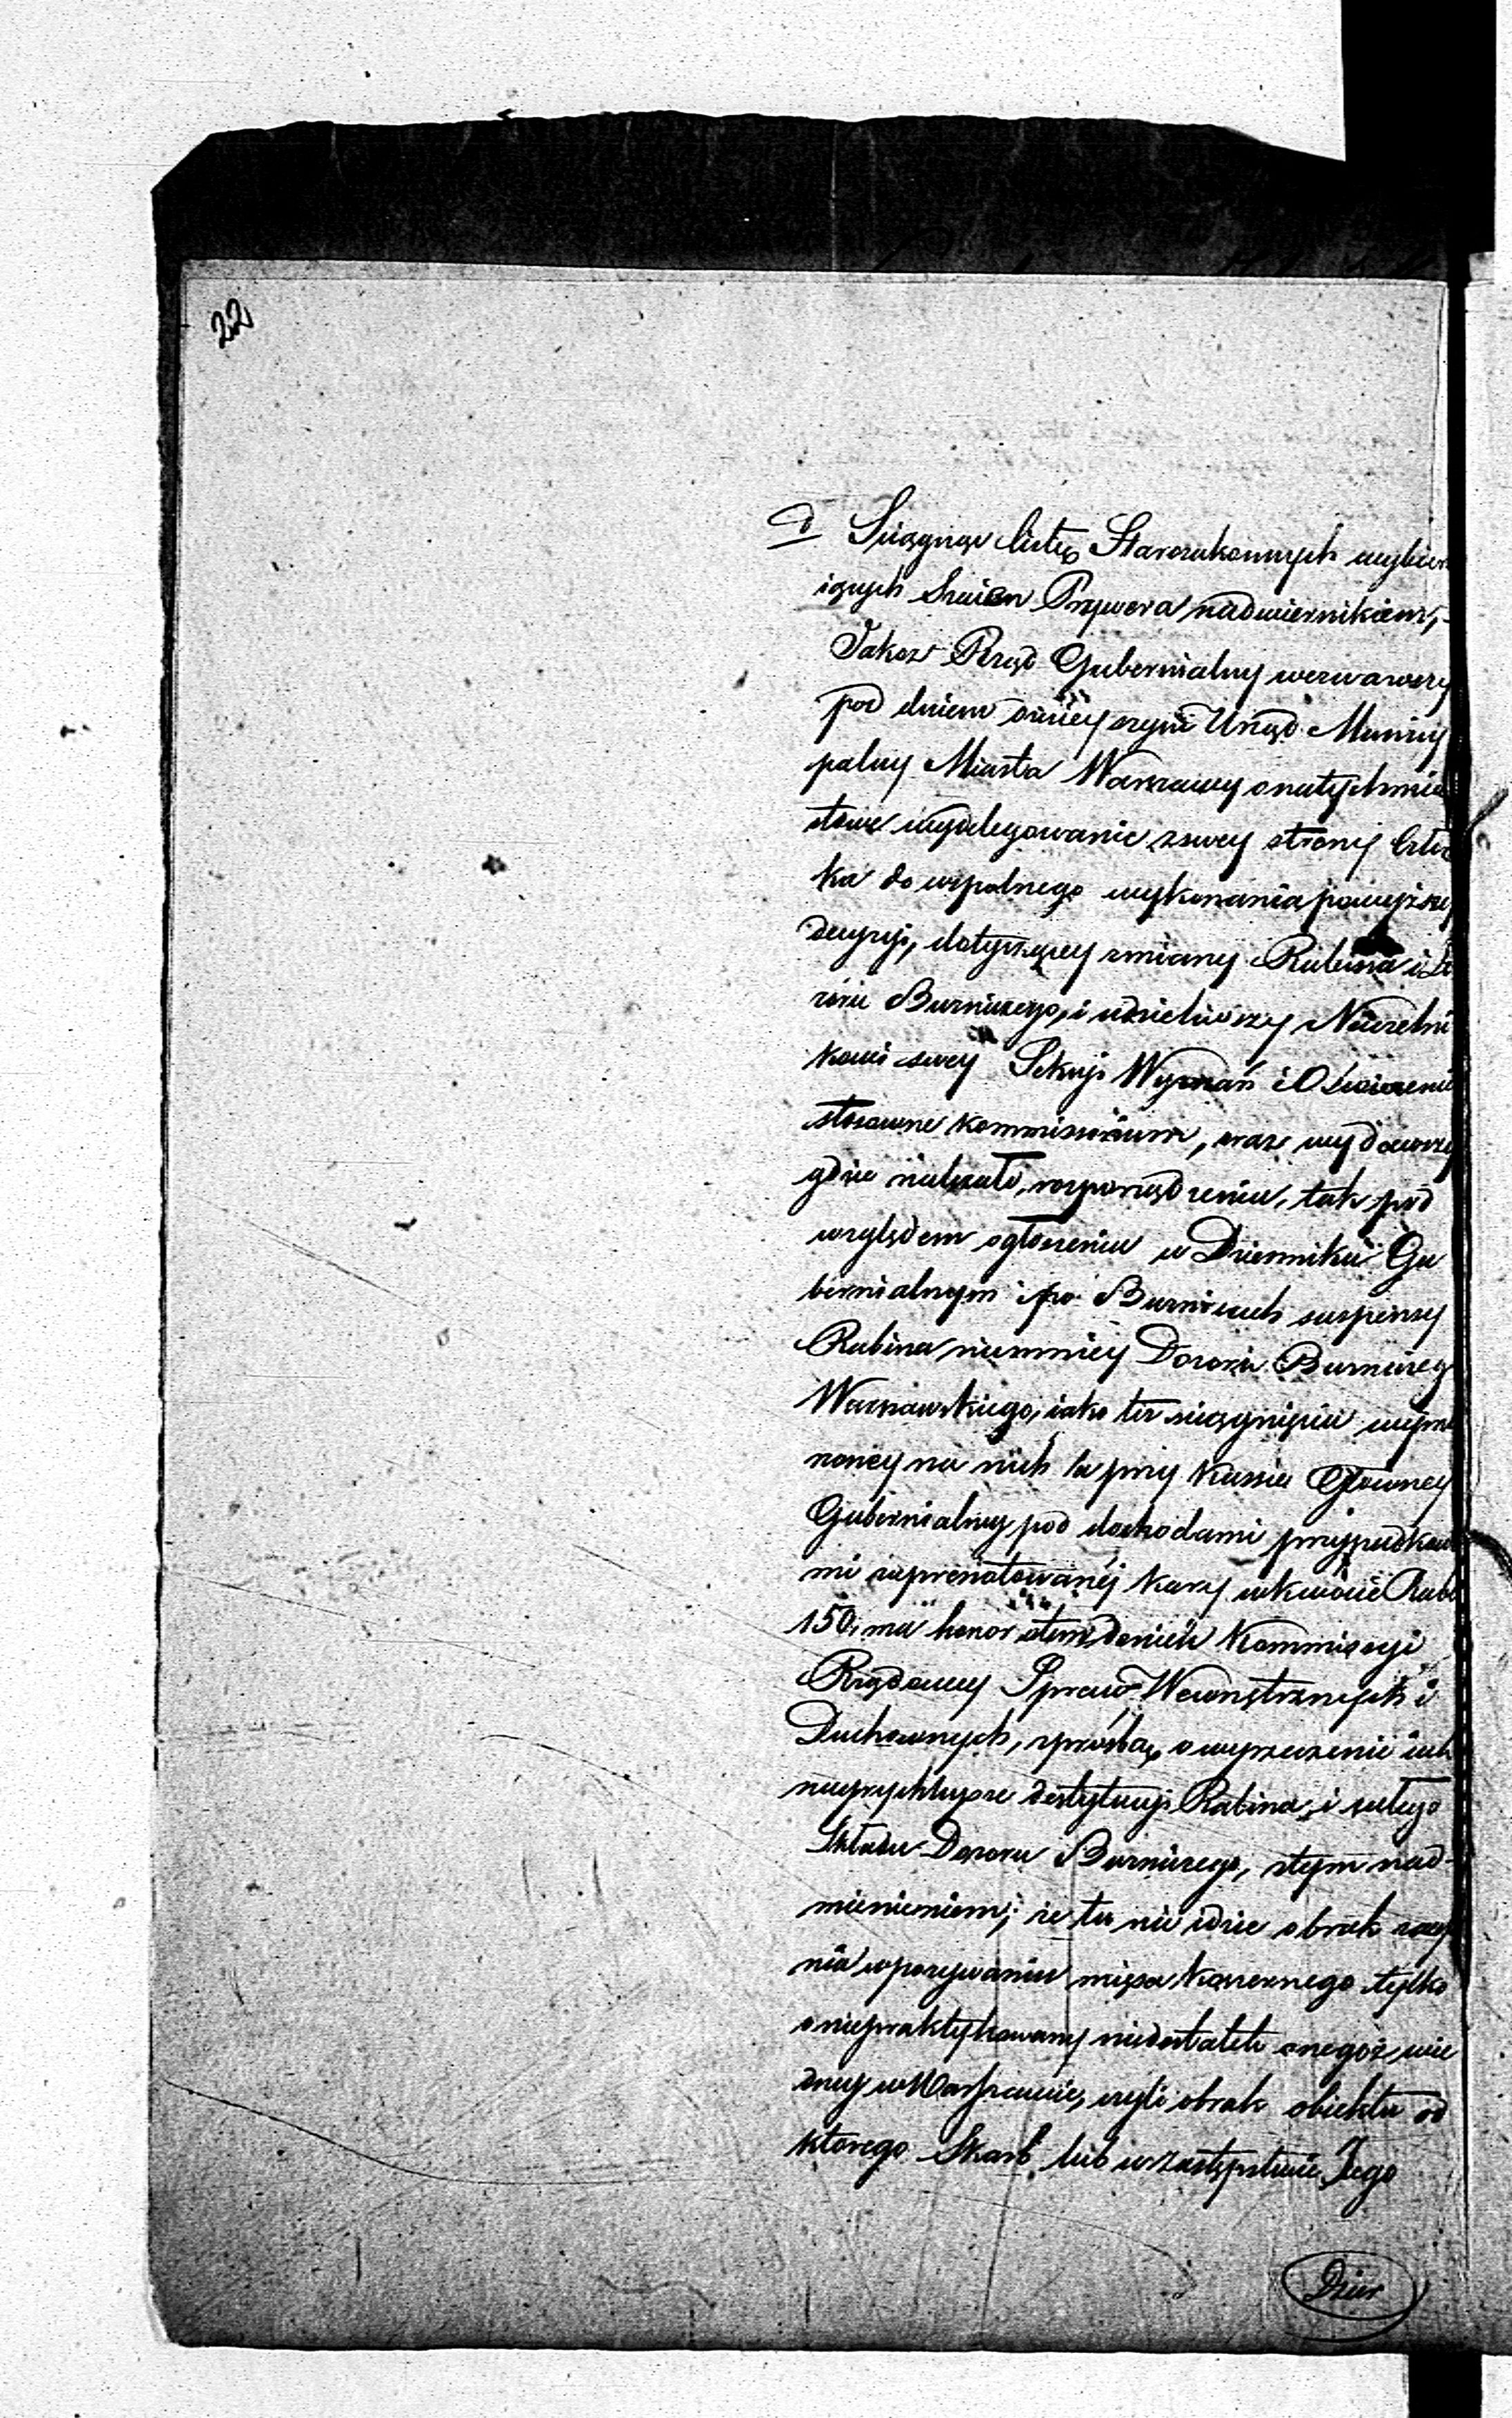 22
d Ściągnąć listę Starozakonnych wybier
iących Srul Przywora nadwiernikiem,
Jakoż Rząd Gubernialny wezwawszy
pod dniem Urząd Municy
palny Miasta Warszawy o natychmia
stowe wydelegowanie z swey strony Człon
ka do wspolnego wykonania powyższey
decyzyi, dotyczącey zmiany Rabina i Do
zoru Bożniczego, i udzieliwszy Naczelni
kowi swey Sekcyi Wyznań i Oświecenia
stosowne kommissorium, oraz wydawszy
gdzie należało, rozporządzenia, tak pod
względem ogłoszenia w Dzienniku Gu
bernialnym i po Bożnicach suspensy
Rabina niemniey Dozoru Bożniczego
Warszawskiego, iako też ściągnięcia wymie
rzoney na nich a przy Kassie Głowney
Gubernialney pod dochodami przypadkow
mi zaprenotowanéy kary w kwocie Rub
150, ma honor o tem donieść Kommissyi
Rządowey Spraw Wewnętrznych i
Duchownych, z prośbą o wyrzeczenie iak
nayrychleysze destytucyi Rabina, i całego
Składu Dozoru Bożniczego, z tym nad-
mienieniem; że tu nie idzie o brak
nia w pożywaniu mięsa koszernego tylko
o niepraktykowany niedostatek onegoż wie
dney w Warszawie, czyli o brak obiektu od
ktorego Skarb lub w zastępstwie Jego
Dzier